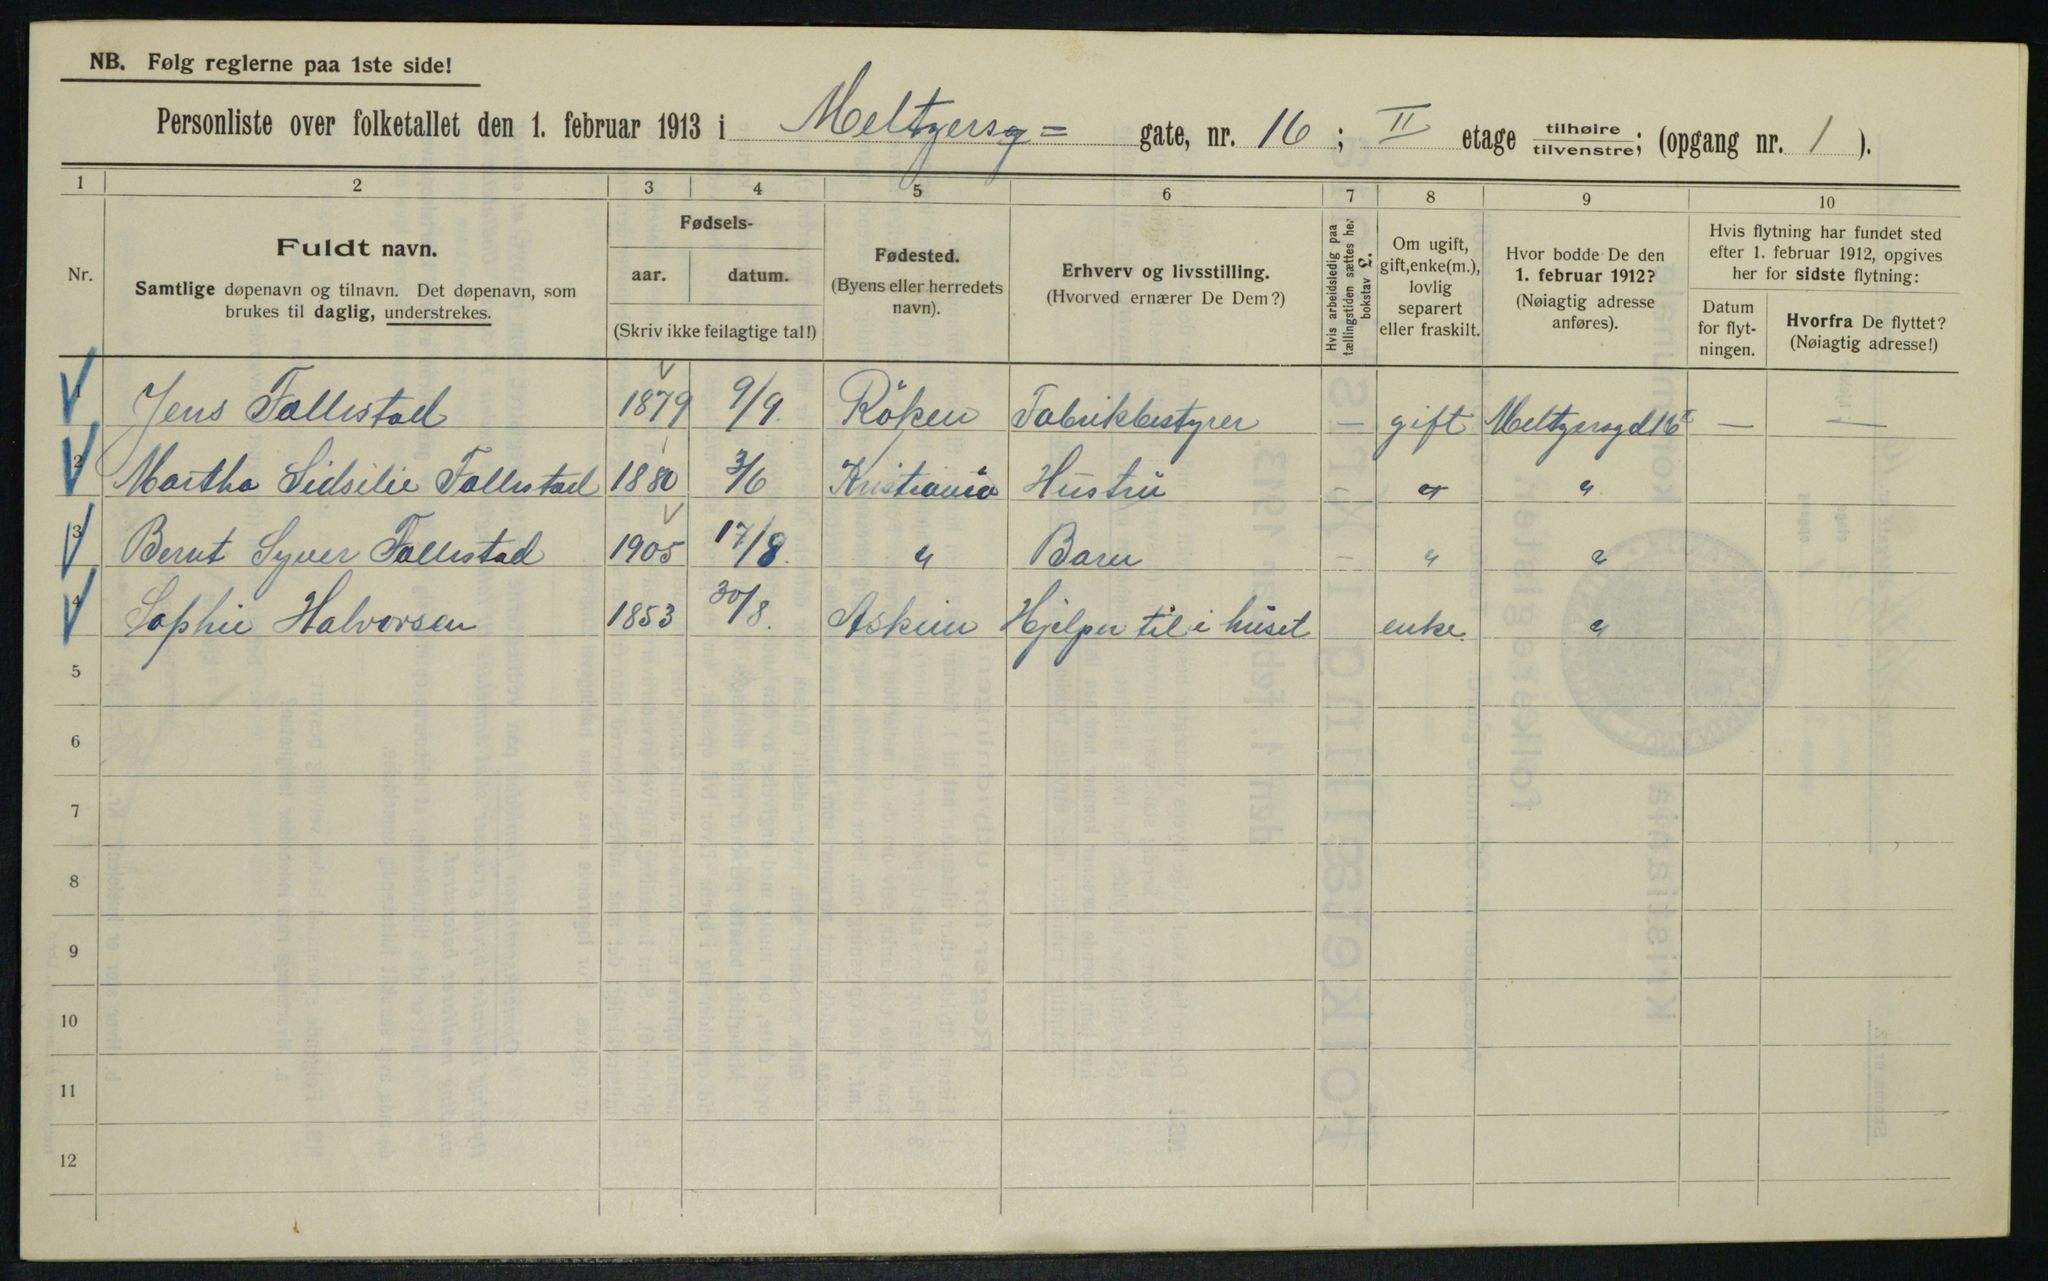 NB. Følg reglerne paa 1ste side!
Personliste over folketallet den 1. februar 1913 i Meltzersg= gate, nr. 16; II etage tilhøire tilvenstre; (opgang nr. 1).
1 2 3 4 5 6 7 8 9 10
Nr.
Fuldt navn.
Samtlige døpenavn og tilnavn. Det døpenavn, som
brukes til daglig, understrekes.
Fødsels-
aar. datum.
(Skriv ikke feilagtige tal!)
Fødested.
(Byens eller herredets
navn).
Erhverv og livsstilling.
(Hvorved ernærer De Dem?)
Hvis arbeidsledig paa
tællingstiden sættes her
bokstav L.
Om ugift,
gift, enke(m.),
lovlig
separert
eller fraskilt.
Hvor bodde De den
1. februar 1912?
(Nøiagtig adresse
anføres).
Hvis flytning har fundet sted
efter 1. februar 1912, opgives
her for sidste flytning:
Datum
for flyt-
ningen.
Hvorfra De flyttet?
(Nøiagtig adresse!)
1 Jens Fallestad 1879 9/9 Röken Fabrikbestyrer gift Meltzersgd 16 II — —
2 Martha Sidsilie Fallestad 1880 3/6 Kristiania Hustru " "
3 Bernt Syver Fallestad 1905 17/8. " Barn " "
4 Sophie Halvorsen 1853 30/8. Askim Hjelper til i huset enke. "
5
6
7
8
9
10
11
12